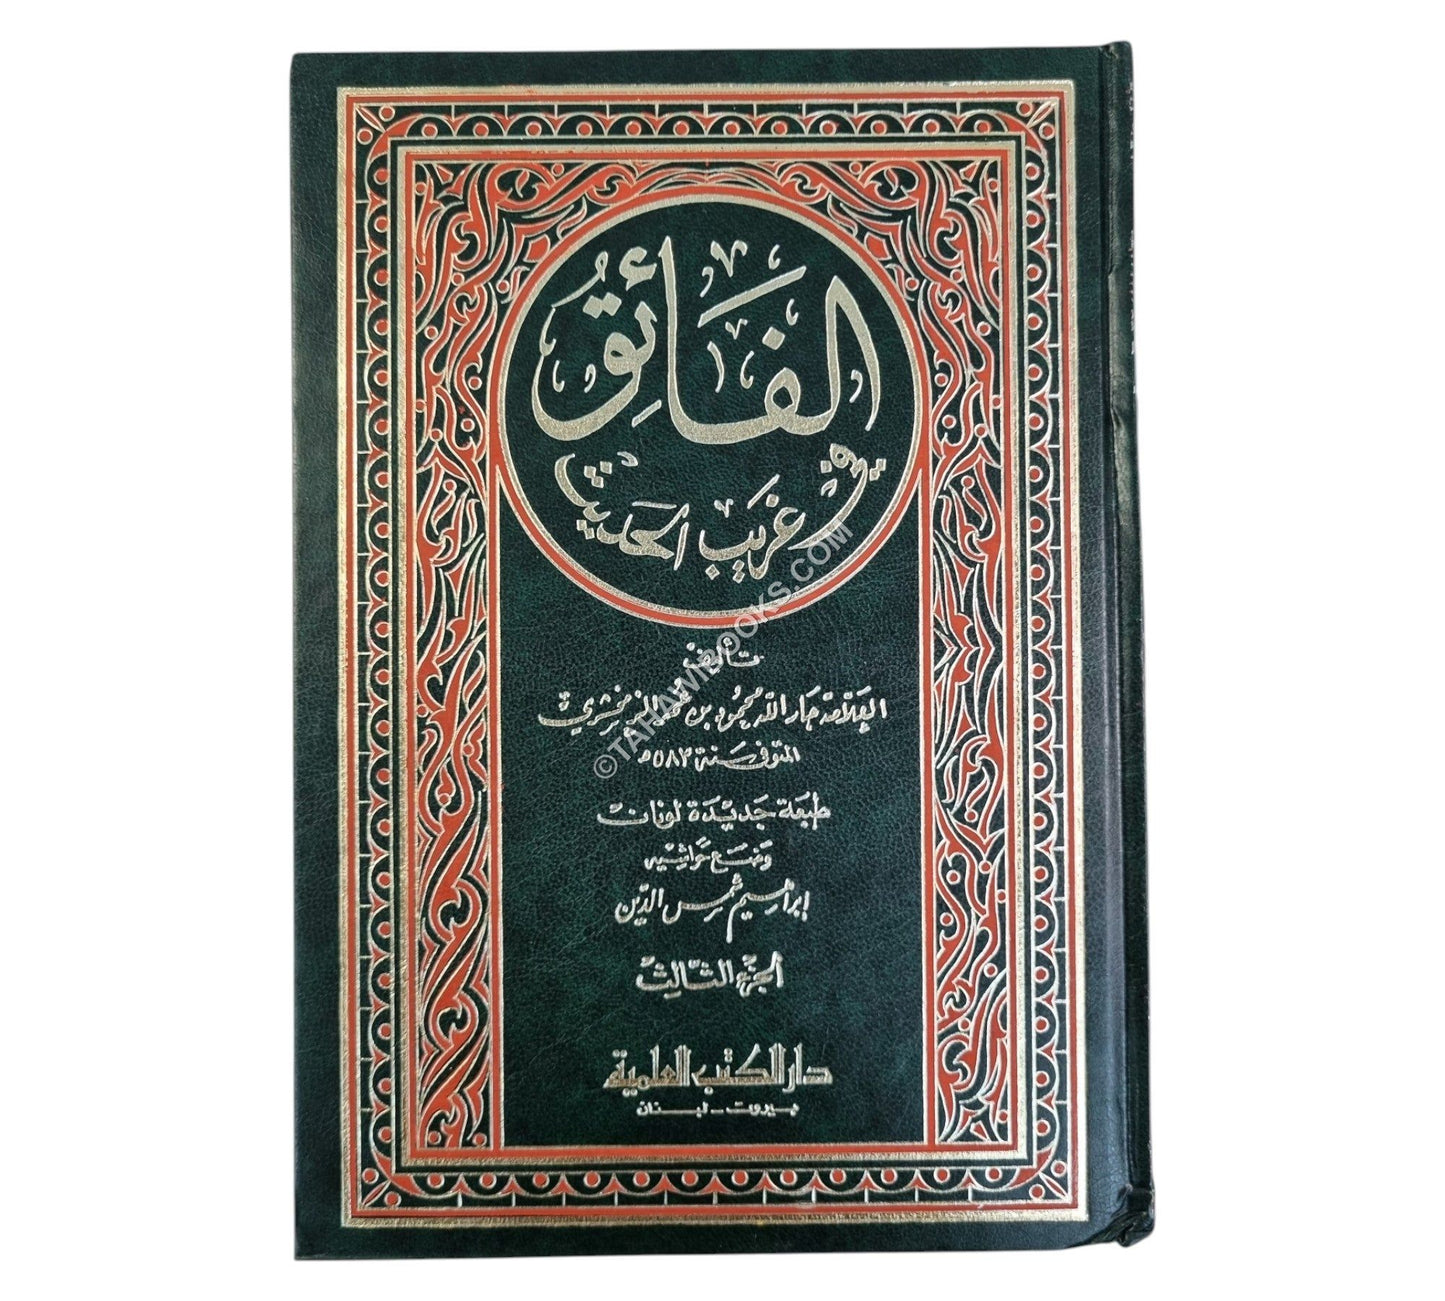 الفائق
في غريب الحديث
تأليف
العلامة جار الله محمود بن عمر الزمخشري
المتوفى سنة ٥٨٣ ھ
طبعة جديدة لونان
وضع حواشيه
إبراهيم شمس الدين
الجزء الثالث
دار الكتب العلمية
بيروت - لبنان
© TAHAWIBOOKS.COM